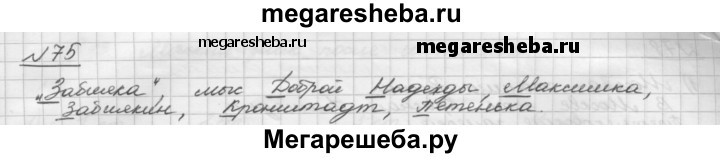 megaresheba.ru
№75
megaresheba.ru
megaresheba.ru
„Забияка“, мыс Доброй Надежды, Максимка,
Забиякин, Кронштадт, Петенька.
Мегарешеба.ру